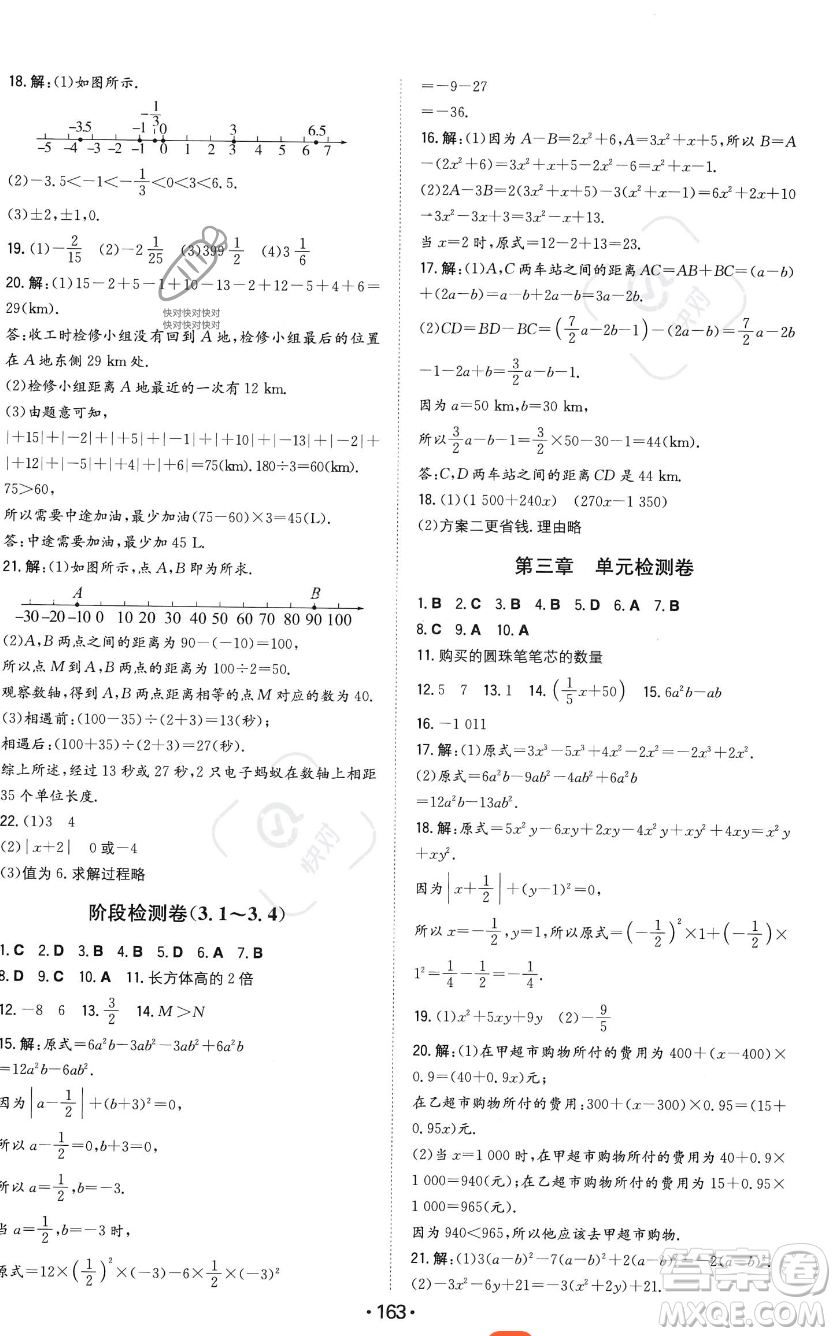 18.解:(1)如图所示.
-3.5 -1 -1/3 0 3 6.5
-5 -4 -3 -2 -1 0 1 2 3 4 5 6 7
(2)-3.5<-1<-1/3<0<3<6.5.
(3)±2,±1,0.
19.(1)-2/15 (2)-2 1/25 (3)399 1/2 (4)3 1/6
20.解:(1)15-2+5-1+10-13-2+12-5+4+6=
29(km).
快对快对快对
快对快对快对
答:收工时检修小组没有回到A地,检修小组最后的位置
在A地东侧29 km处.
(2)检修小组距离A地最近的一次有12 km.
(3)由题意可知,
|+15|+|-2|+|+5|+|-1|+|+10|+|-13|+|-2|+
|+12|+|-5|+|+4|+|+6|=75(km).180÷3=60(km).
75>60,
所以需要中途加油,最少加油(75-60)×3=45(L).
答:中途需要加油,最少加45 L.
21.解:(1)如图所示,点A,B即为所求.
A B
-30 -20 -10 0 10 20 30 40 50 60 70 80 90 100
(2)A,B两点之间的距离为90-(-10)=100,
所以点M到A,B两点的距离为100÷2=50.
观察数轴,得到A,B两点距离相等的点M对应的数为40.
(3)相遇前:(100-35)÷(2+3)=13(秒);
相遇后:(100+35)÷(2+3)=27(秒).
综上所述,经过13秒或27秒,2只电子蚂蚁在数轴上相距
35个单位长度.
22.(1)3 4
(2)|x+2| 0或-4
(3)值为6.求解过程略
阶段检测卷(3.1～3.4)
1.C 2.D 3.B 4.B 5.D 6.A 7.B
8.D 9.C 10.A 11.长方体高的2倍
12.-8 6 13.3/2 14.M>N
15.解:原式=6a²b-3ab²-3ab²+6a²b
=12a²b-6ab².
因为|a-1/2|+(b+3)²=0,
所以a-1/2=0,b+3=0,
所以a=1/2,b=-3.
当a=1/2,b=-3时,
原式=12×(1/2)²×(-3)-6×1/2×(-3)²
=-9-27
=-36.
16.解:(1)因为A-B=2x²+6,A=3x²+x+5,所以B=A
-(2x²+6)=3x²+x+5-2x²-6=x²+x-1.
(2)2A-3B=2(3x²+x+5)-3(x²+x-1)=6x²+2x+10
-3x²-3x+3=3x²-x+13.
当x=2时,原式=12-2+13=23.
17.解:(1)A,C两车站之间的距离AC=AB+BC=(a-b)
+(2a-b)=a-b+2a-b=3a-2b.
(2)CD=BD-BC=(7/2a-2b-1)-(2a-b)=7/2a-2b
-1-2a+b=3/2a-b-1.
因为a=50 km,b=30 km,
所以3/2a-b-1=3/2×50-30-1=44(km).
答:C,D两车站之间的距离CD是44 km.
18.(1)(1 500+240x) (270x-1 350)
(2)方案二更省钱.理由略
第三章 单元检测卷
1.B 2.C 3.B 4.B 5.D 6.A 7.B
8.C 9.A 10.A
11.购买的圆珠笔笔芯的数量
12.5 7 13.1 14.(1/5x+50) 15.6a²b-ab
16.-1 011
17.解:(1)原式=3x³-5x³+4x²-2x²=-2x³+2x².
(2)原式=6a²b-9ab²-4ab²+6a²b
=12a²b-13ab².
18.解:原式=5x²y-6xy+2xy-4x²y+xy²+4xy=x²y
+xy².
因为|x+1/2|+(y-1)²=0,所以x+1/2=0,y-1=0,
所以x=-1/2,y=1,所以原式=(-1/2)²×1+(-1/2)×
1²=1/4-1/2=-1/4.
19.(1)x²+5xy+9y (2)-9/5
20.解:(1)在甲超市购物所付的费用为400+(x-400)×
0.9=(40+0.9x)元;
在乙超市购物所付的费用:300+(x-300)×0.95=(15+
0.95x)元.
(2)当x=1 000时,在甲超市购物所付的费用为40+0.9×
1 000=940(元);在乙超市购物所付的费用为15+0.95×
1 000=965(元).
因为940<965,所以他应该去甲超市购物.
21.解:(1)3(a-b)²-7(a-b)²+2(a-b)²=-2(a-b)².
(2)-3x²-6y+21=-3(x²+2y)+21.
·163·
快对
快对
答案圈
MXQE.COM